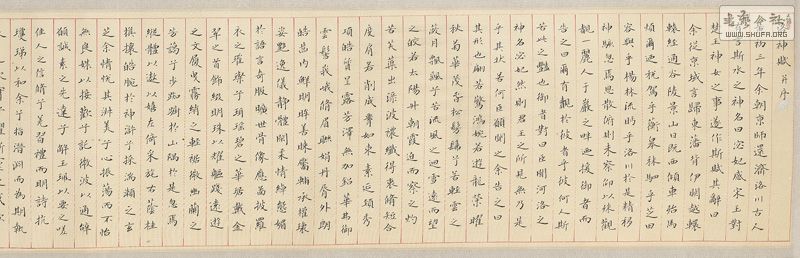 神賦并序
初三年余朝京師還濟洛川古人
言斯水之神名曰宓妃感宋玉對
楚王神女之事遂作斯賦其辭曰
余從京域言歸東藩背伊闕越轘
轅經通谷陵景山日既西傾車殆馬
煩爾迺稅駕乎蘅皋秣駟乎芝田
容與乎楊林流眄乎洛川於是精移
神駭忽焉思散俯則未察仰以殊觀
覩一麗人于巖之畔迺援御者而
告之曰爾有覿於彼者乎彼何人斯
若此之豔也御者對曰臣聞河洛之
神名宓妃然則君王之所見無乃是
乎其狀若何臣願聞之余告之曰
其形也翩若驚鴻婉若遊龍榮曜
秋菊華茂春松髣髴兮若輕雲之
蔽月飄颻兮若流風之迴雪遠而望
之皎若太陽升朝霞迫而察之灼
若芙蕖出淥波襛纖得衷脩短合
度肩若削成腰如束素延頸秀
項皓質呈露芳澤無加鉛華弗御
雲髻峩峩脩眉聯娟丹脣外朗
皓齒內鮮明眸善睞靨輔承權瓌
姿艷逸儀靜體閑柔情綽態媚
於語言奇服曠世骨像應圖披羅
衣之璀粲兮珥瑤碧之華琚戴金
翠之首飾綴明珠以耀軀踐遠遊
之文履曳霧綃之輕裾微幽蘭之
芳藹兮步踟躕於山隅於是忽焉
縱體以遨以嬉左倚采旄右蔭桂
旗攘皓腕於神滸兮採湍瀨之玄
芝余情悅其淑美兮心振蕩而不怡
無良媒以接歡兮託微波以通辭
願誠素之先達兮解玉珮以要之嗟
佳人之信脩兮羌習禮而明詩抗
瓊珶以和予兮指潛淵而為期執
WWW.SHUFA.ORG